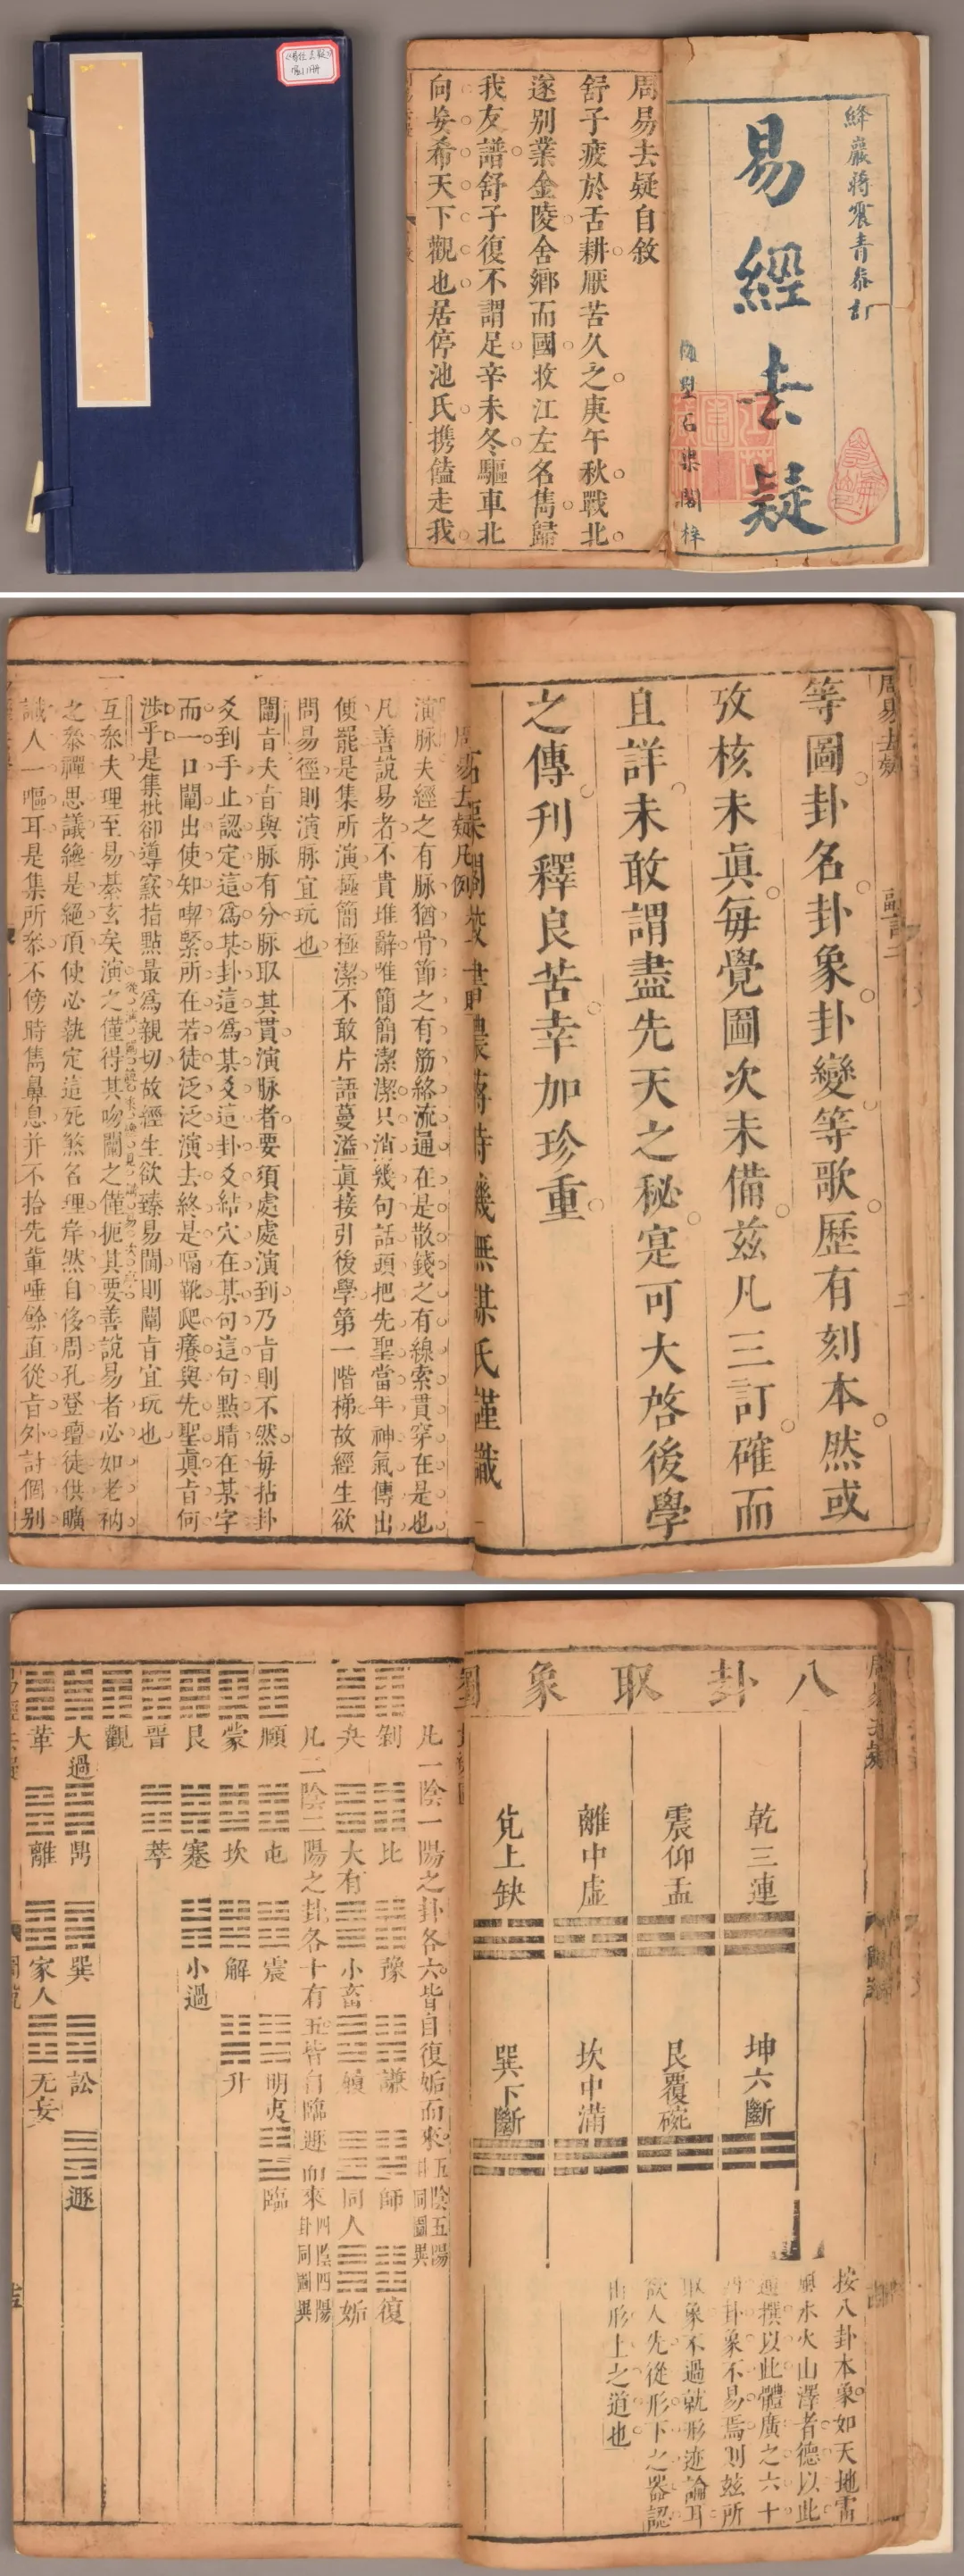 易經去疑
絳巖蔣震青參訂
石渠閣梓
周易去疑自敘
舒子疲於舌耕厭苦久之庚午秋戰北
遂別業金陵舍鄉而國收江左名雋歸
我友譜舒子復不謂足辛未冬驅車北
向妄希天下觀也居停池氏携饁走我
周易去疑
等圖卦名卦象卦變等歌歷有刻本然或
攷核未眞每覺圖次未備茲凡三訂確而
且詳未敢謂盡先天之秘寔可大啓後學
之傳刊釋良苦幸加珍重
演脉夫經之有脉猶骨節之有筋絡流通在是散錢之有線索貫穿在是也
凡善說易者不貴堆辭唯簡簡潔潔只消幾句話頭把先聖當年神氣傳出
便罷是集所演極簡極潔不敢片語蔓溢眞接引後學第一階梯故經生欲
問易徑則演脉宜玩也
闡旨夫旨與脉有分脉取其貫演脉者要須處處演到乃旨則不然每拈卦
爻到手止認定這爲某卦這爲某爻這卦爻結穴在某句這句點睛在某字
而一口闡出使知喫緊所在若徒泛泛演去終是隔靴爬癢與先聖眞旨何
涉乎是集批卻導窾指點最爲親切故經生欲臻易間則闡旨宜玩也
互參夫理至易綦玄矣演之僅得其吻闡之僅扼其要善說易者必如老衲
之參禪思議纔是絕頂使必執定這死煞名理岸然自侈周孔登壇徒供曠
識人一嘔耳是集所參不傍時雋鼻息并不拾先軰唾餘直從旨外討個别
八卦取象
乾三連
坤六斷
震仰盂
艮覆碗
離中虛
坎中滿
兌上缺
巽下斷
按八卦本象如天地雷
風水火山澤者德以此
象不易焉則玆所
取象不過就形迹論耳
欲人先從形下之器認
出形上之道也
凡一陰一陽之卦各六皆自復姤而來五陰五陽
卦同圖異
剝 比 豫 謙 師 復
夬 大有 小畜 履 同人 姤
凡二陰二陽之卦各十有五皆自臨遯而來四陰四陽
卦同圖異
頤 屯 震 明夷 臨
蒙 坎 解 升
艮 蹇 小過
晉 萃
觀
大過 鼎 巽 訟 遯
革 離 家人 无妄